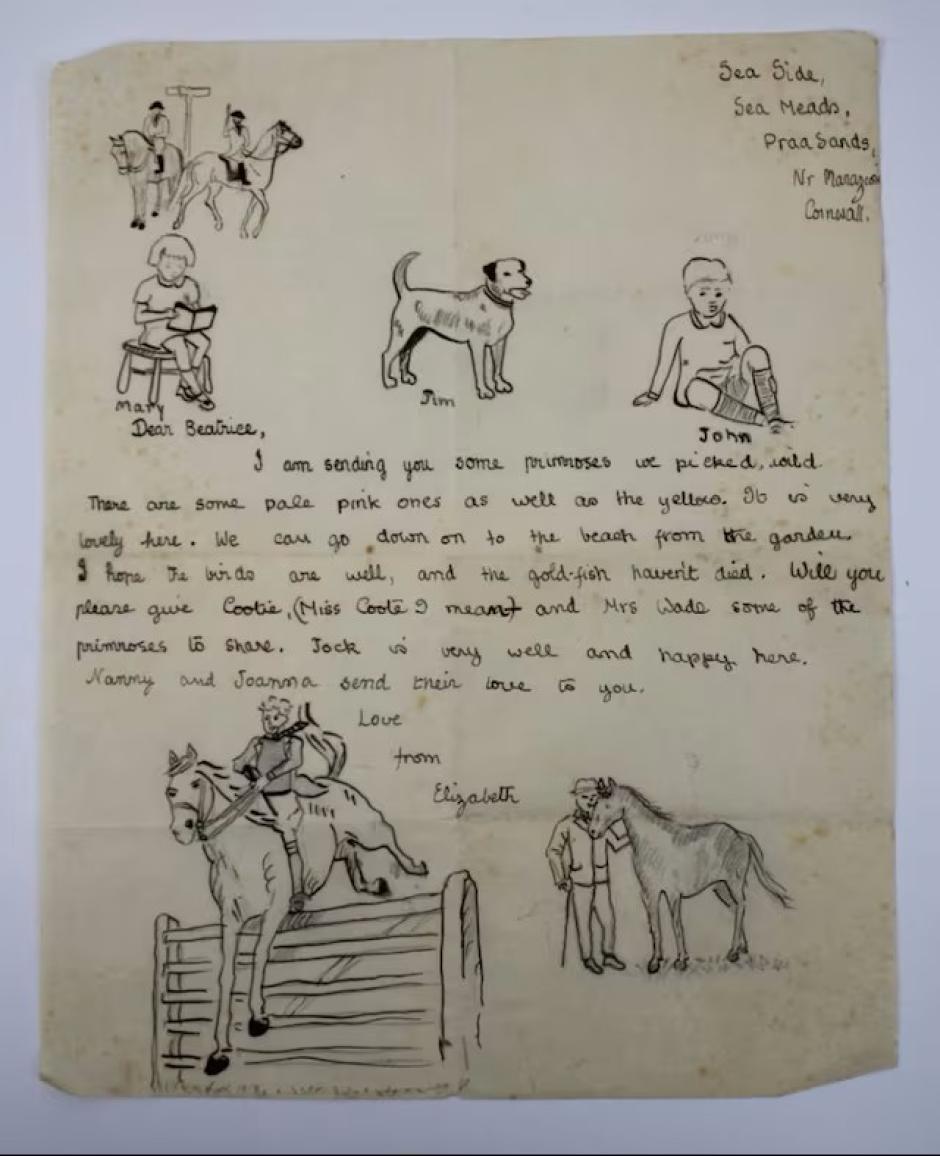 Sea Side,
Sea Meads,
Praa Sands,
Nr
Cornwall.
Mary
Jim
John
Dear Beatrice,
I am sending you some primroses we picked, wild.
There are some pale pink ones as well as the yellow. It is very
lovely here. We can go down on to the beach from the garden.
I hope the birds are well, and the gold-fish haven't died. Will you
please give Cootie, (Miss Coote I mean) and Mrs Wade some of the
primroses to share. Jock is very well and happy here.
Nanny and Joanna send their love to you.
Love
from
Elizabeth